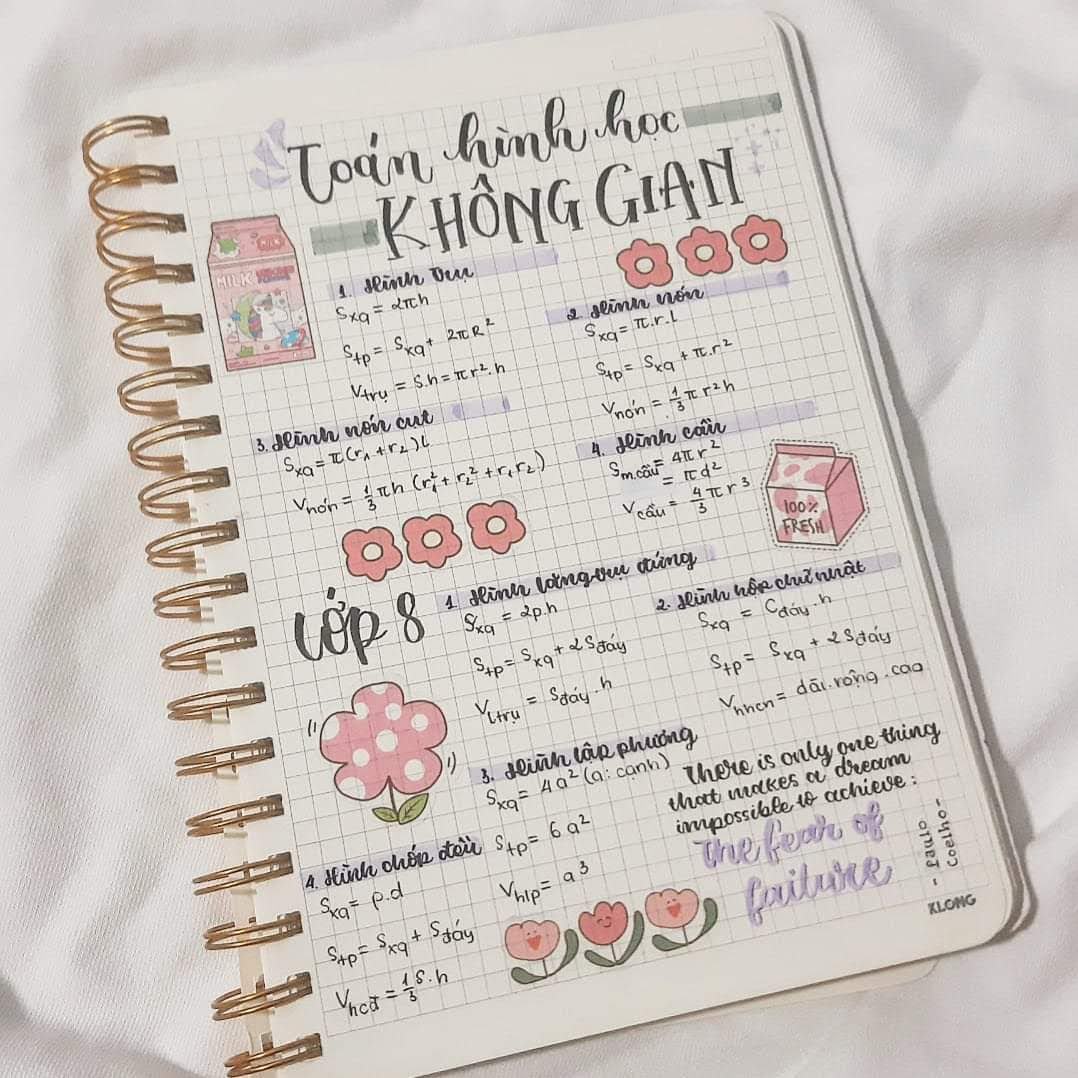 Toán hình học
KHÔNG GIAN
MILK
MILK
1. Hình trụ
Sxq = 2πh
Stp = Sxq + 2πR²
Vtrụ = S.h = πr².h
2. Hình nón
Sxq = π.r.l
Stp = Sxq + π.r²
Vnón = 1/3 πr²h
3. Hình nón cụt
Sxq = π(r₁ + r₂)l
Vnón = 1/3 πh (r₁² + r₂² + r₁r₂)
4. Hình cầu
Sm.cầu = 4πr²
= πd²
Vcầu = 4/3 πr³
100%
FRESH
LỚP 8
1. Hình lăng trụ đứng
Sxq = 2p.h
Stp = Sxq + 2Sđáy
Vltrụ = Sđáy.h
2. Hình hộp chữ nhật
Sxq = Cđáy.h
Stp = Sxq + 2Sđáy
Vhhcn = dài.rộng.cao
3. Hình lập phương
Sxq = 4a² (a: cạnh)
Stp = 6a²
Vhlp = a³
4. Hình chóp đều
Sxq = p.d
Stp = Sxq + Sđáy
Vhcđ = 1/3 S.h
There is only one thing
that makes a dream
impossible to achieve:
the fear of
failure
- Paulo
Coelho -
KLONG